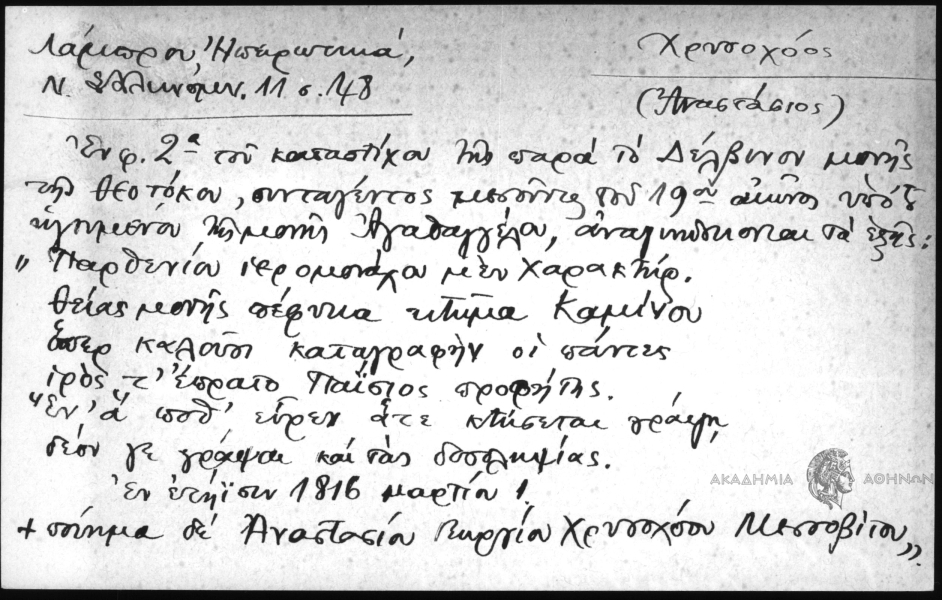 Λάμπρου, Ἠπειρωτικά,
Ν. Ἑλληνομν. 11 σ. 148
Χρυσοχόος
(Ἀναστάσιος)
Ἐν φ. 2α τοῦ καταστίχου τῆς παρὰ τὸ Δέλβινον μονῆς
τῆς Θεοτόκου, συνταγέντος μεσοῦντος τοῦ 19ου αἰῶνος ὑπὸ τοῦ
ἡγουμένου τῆς μονῆς Ἀγαθαγγέλου, ἀναγινώσκονται τὰ ἑξῆς:
„ Παρθενίου ἱερομονάχου μὲν χαρακτήρ.
θείας μονῆς πέφυκα κτῆμα Καμίνου
ὅπερ καλοῦσι καταγραφὴν οἱ πάντες
ἱρὸς τ' ἔπρατο Παΐσιος προφήτης.
Ἐν' ἅ ποθ' εὗρεν ἅτε κτήσεται γράψῃ
δέον γε γράψαι καὶ τὰς δοσοληψίας.
Ἐν ἔτηϊσιν 1816 μαρτίου 1.
+ ποίημα δέ Ἀναστασίου Γεωργίου Χρυσοχόου Μεσοβίτου „.
ΑΚΑΔΗΜΙΑ ΑΘΗΝΩΝ